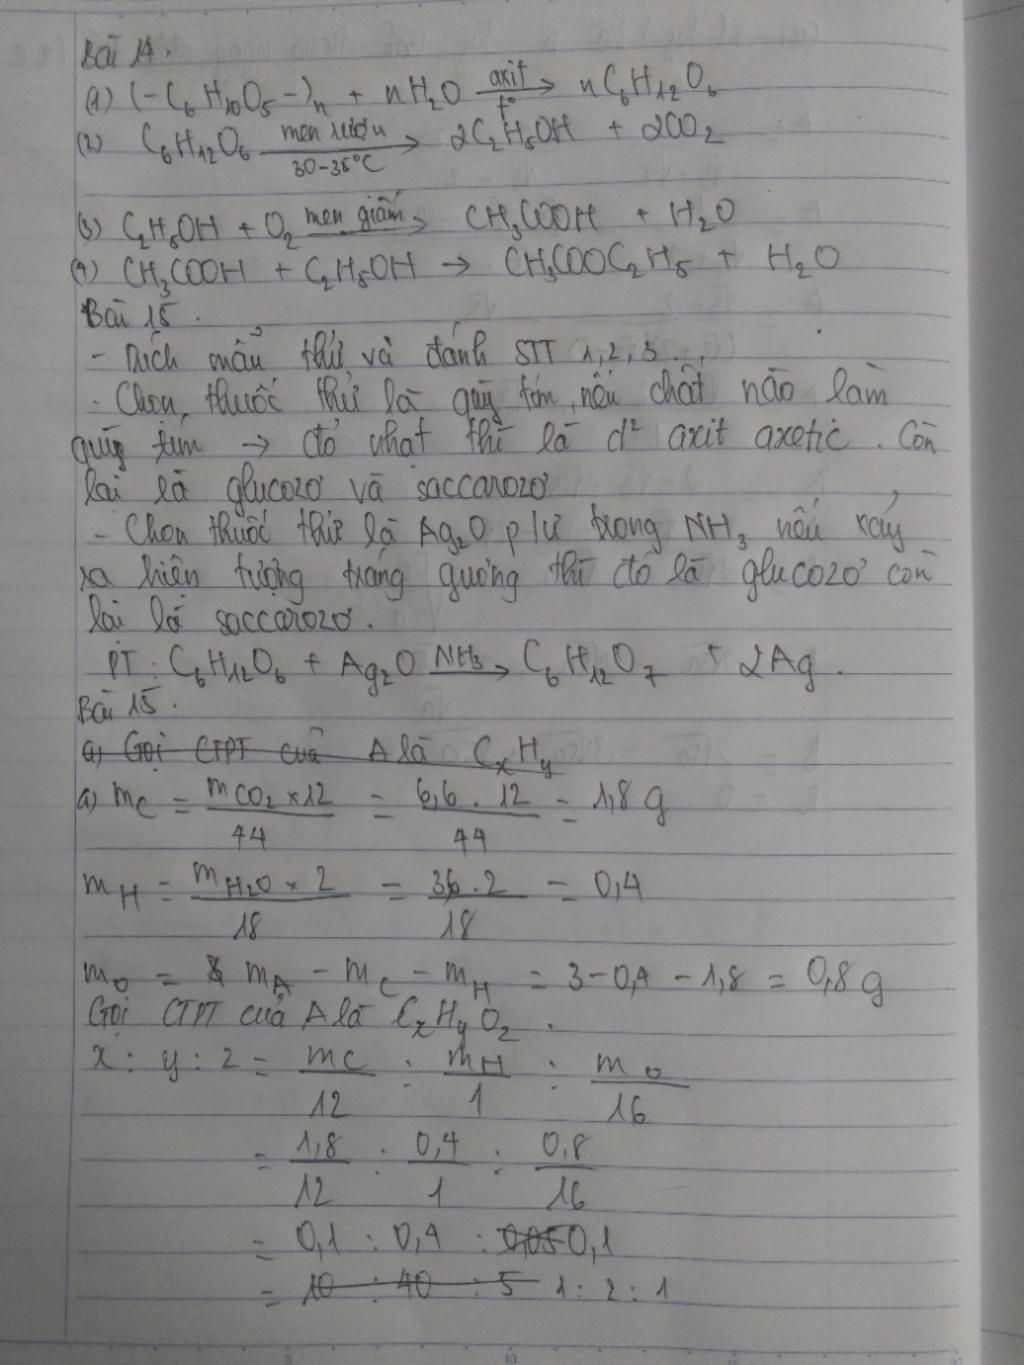 Bài 14.
(1) (-C6H10O5-)n + nH2O axit t° → nC6H12O6
(2) C6H12O6 men rượu 30-35°C → 2C2H5OH + 2CO2
(3) C2H5OH + O2 men giấm → CH3COOH + H2O
(4) CH3COOH + C2H5OH → CH3COOC2H5 + H2O
Bài 15.
- Trích mẩu thử và đánh STT 1, 2, 3 ...
- Chọn thuốc thử là quỳ tím, nếu chất nào làm
quỳ tím → đỏ nhạt thì là d² axit axetic. Còn
lại là glucozơ và saccarozơ
- Chọn thuốc thử là Ag2O p/ư trong NH3 nếu xảy
ra hiện tượng tráng gương thì đó là glucozơ còn
lại là saccarozơ.
PT: C6H12O6 + Ag2O NH3 → C6H12O7 + 2Ag.
Bài 15.
a) Gọi CTPT của A là CxHy
a) mC = mCO2 × 12 / 44 = 6,6 . 12 / 44 = 1,8 g
mH = mH2O × 2 / 18 = 3,6 . 2 / 18 = 0,4
mO = mA - mC - mH = 3 - 0,4 - 1,8 = 0,8 g
Gọi CTPT của A là CxHyOz.
x : y : z = mC / 12 : mH / 1 : mO / 16
= 1,8 / 12 : 0,4 / 1 : 0,8 / 16
= 0,1 : 0,4 : 0,05 0,1
= 10 : 40 : 5 1 : 2 : 1